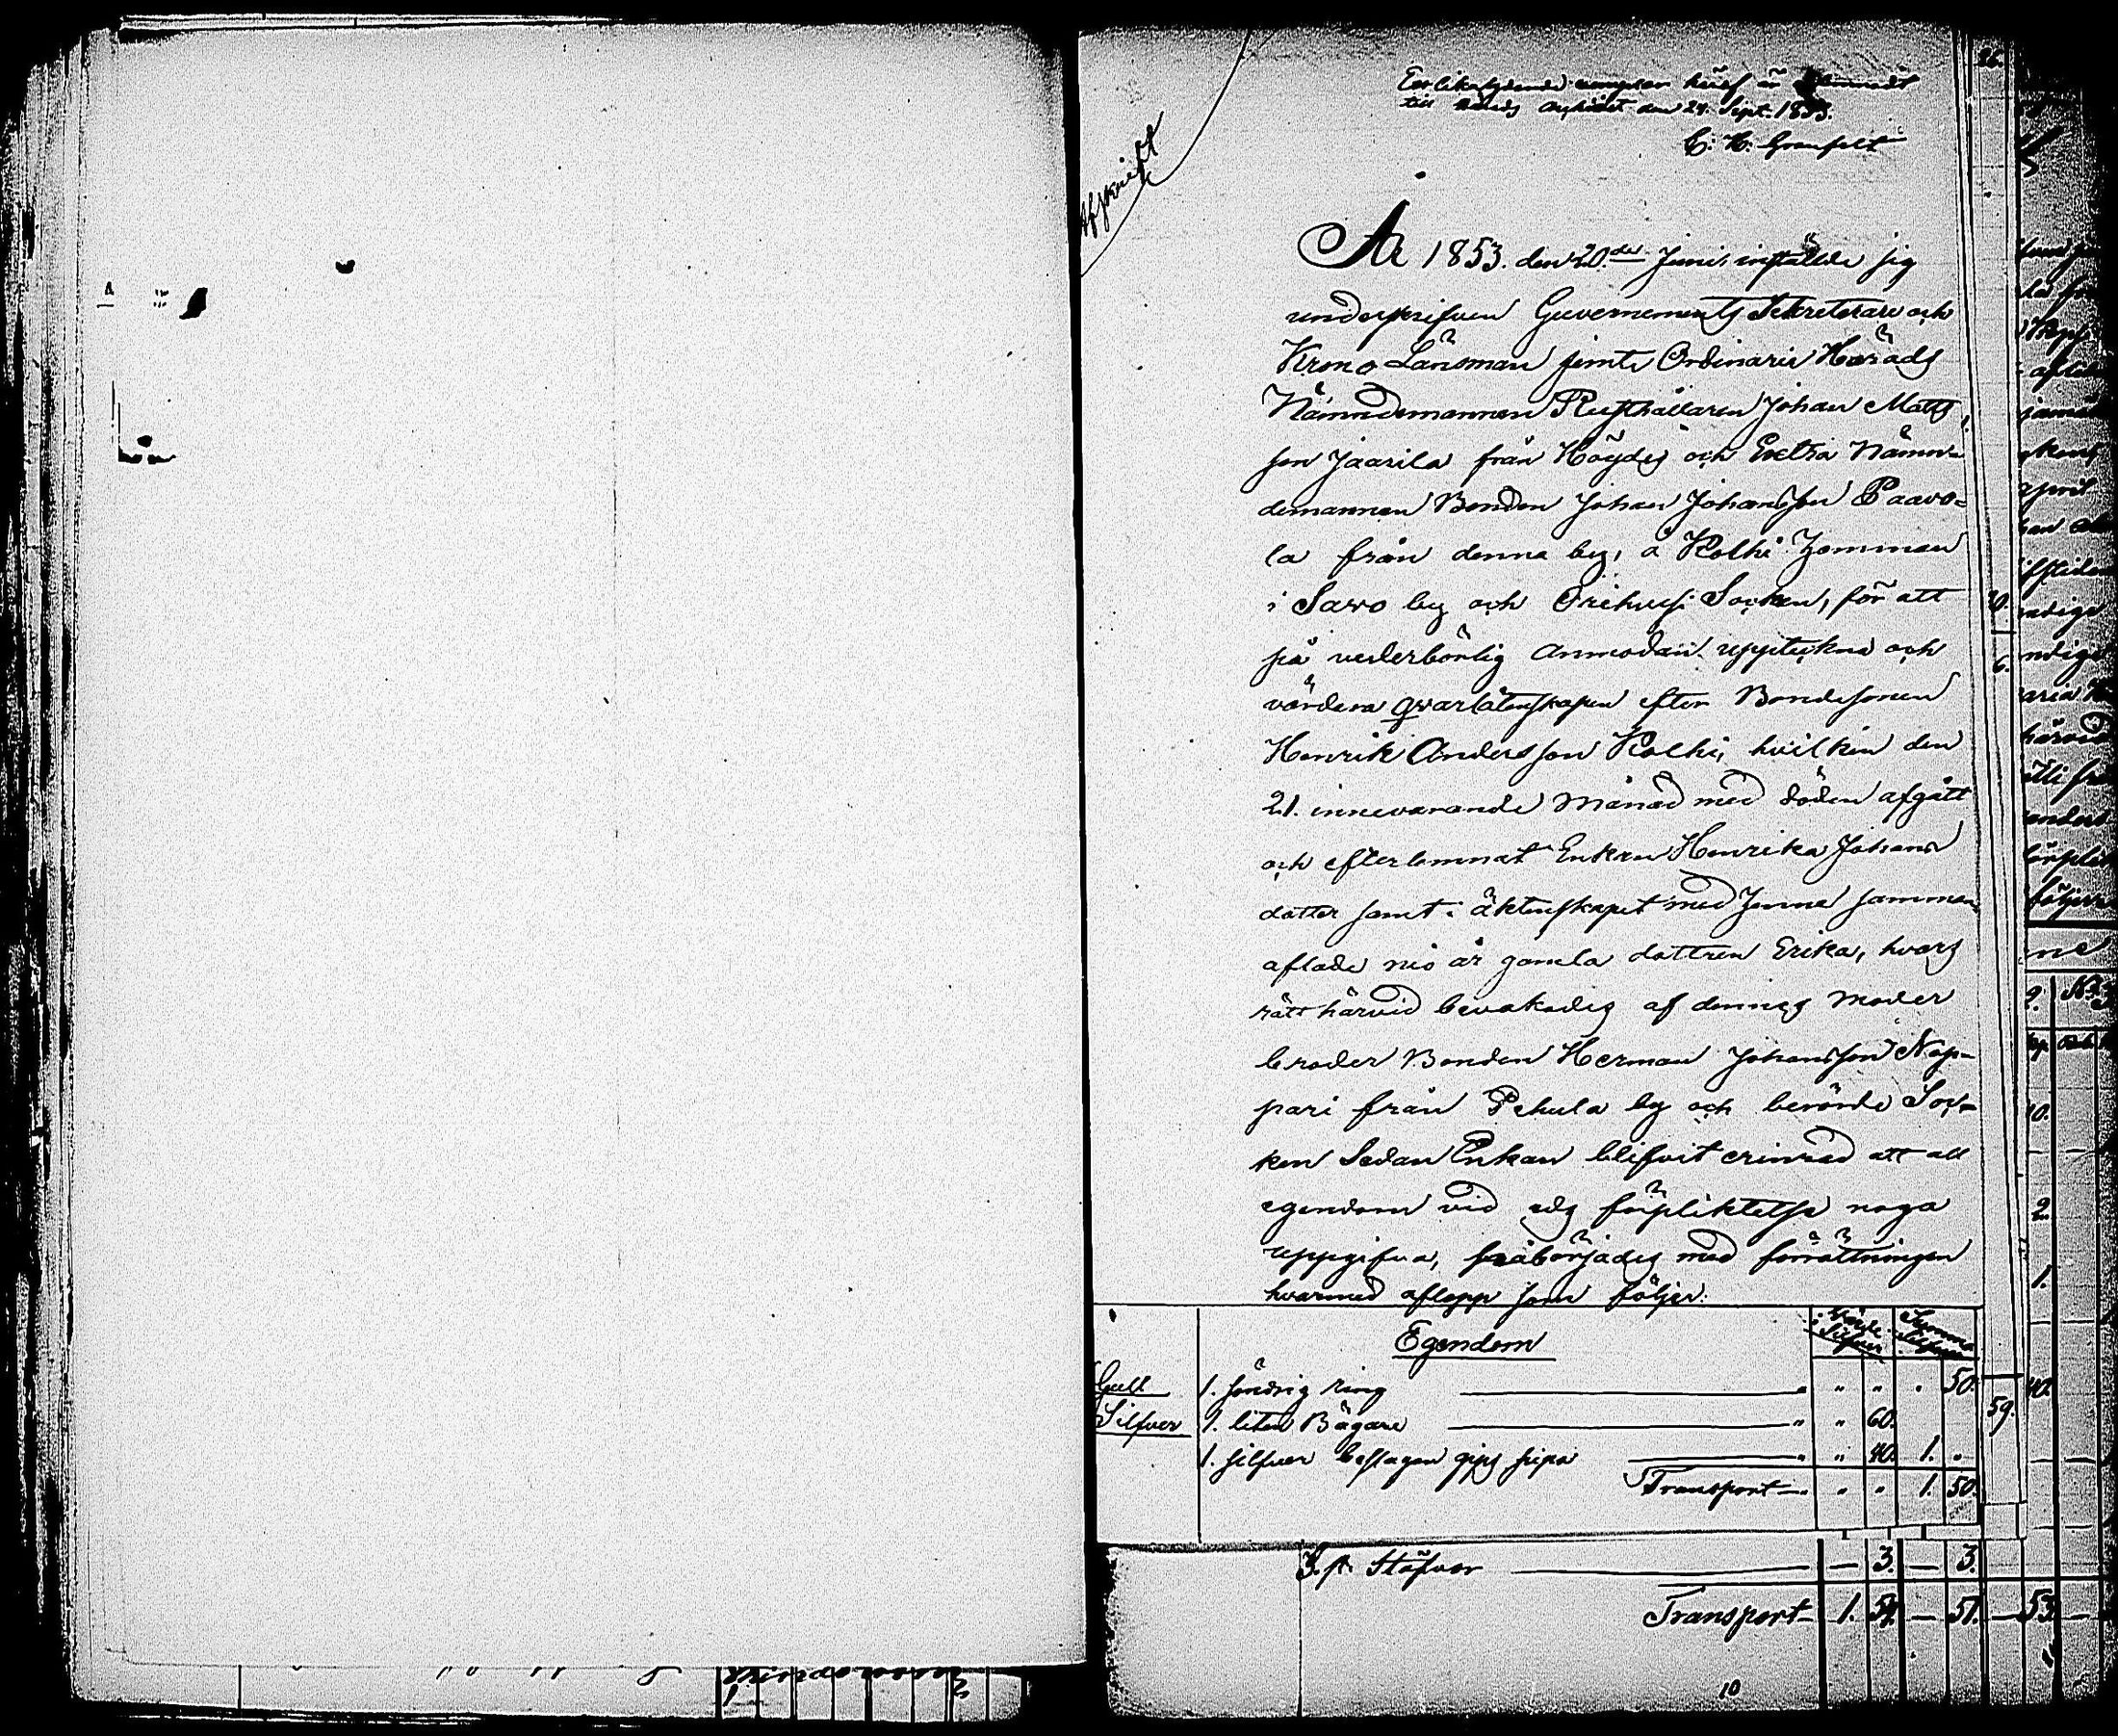 En likalydende exemplar häraf är
till Härads Archivet den 24. Sept. 1853.
C. H. Granfelt
Afskrift
År 1853. den 20.de Juni instälde jig
underskrifven Guvernements Sekreterare och
Krono Länsman jemte Ordinarie Härads
Nämndemannen Rusthållaren Johan Matts
son Jaarila från Höydes och Extra Nämn-
demannen Bonden Johan Johansson Paavo-
la från denna by, å Kolhi hemman
i Sawo by och Orihvesi Socken, för att
på vederbörlig anmodan uppteckna och
värdera qvarlåtenskapen efter Bondesonen
Henrik Andersson Kolhi, hvilken den
21. innevarande Månad med döden afgått
och efterlemnat Enkan Henrika Johans
dotter samt i äktenskapet med henne samman
aflade nio år gamla dottren Erika, hvars
rätt härvid bevakades af dennes Moder
broder Bonden Herman Johansson Nop-
pari från Pehula by och berörde Soc-
ken Sedan Enkan blifvit erinrad att all
egendom vid edg förpliktelse noga
uppgifva, påbörjades med förrättningen
hvarmed aflopp som följer:
Egendom Värde Silfver Summa Silfver
Gull 1. söndrig ring " " " " 50.
Silfver 1. liten Bägare " " 60.
1. silfver beslagen gips pipa " " 40. 1. "
Transport " " " 1. 50.
3. p. Stöfvor — 3. — 3.
Transport 1. 54. — 51. — 53.
10